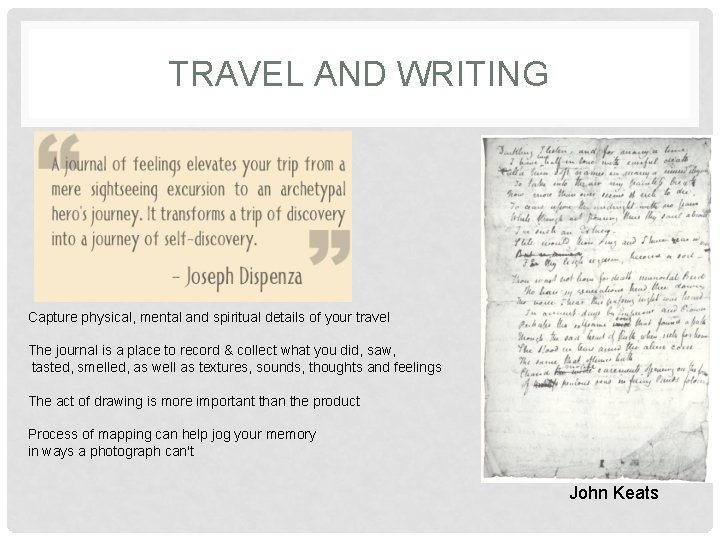 TRAVEL AND WRITING
“A journal of feelings elevates your trip from a
mere sightseeing excursion to an archetypal
hero's journey. It transforms a trip of discovery
into a journey of self-discovery.”
- Joseph Dispenza
Capture physical, mental and spiritual details of your travel
The journal is a place to record & collect what you did, saw,
tasted, smelled, as well as textures, sounds, thoughts and feelings
The act of drawing is more important than the product
Process of mapping can help jog your memory
in ways a photograph can't
Darkling I listen, and for many a time
I have been half in love with easeful death
soft names in many a mused rhyme
To take into the air my breath
Now more than ever seems it rich to die
To cease upon the midnight with no pain
While thou art pouring thus thy soul abroad
In such an
Still would thou sing and I have ears in vain
thy high requiem, become a sod
Thou wast not born for death immortal Bird
No generations tread thee down
The voice I hear this passing night was heard
In ancient days by Emperor and Clown
Perhaps the selfsame song that found a path
Through the sad heart of Ruth when sick for home
She stood in tears amid the alien corn
The same that hath
casements opening on the foam
Of perilous seas in fairy lands forlorn
John Keats